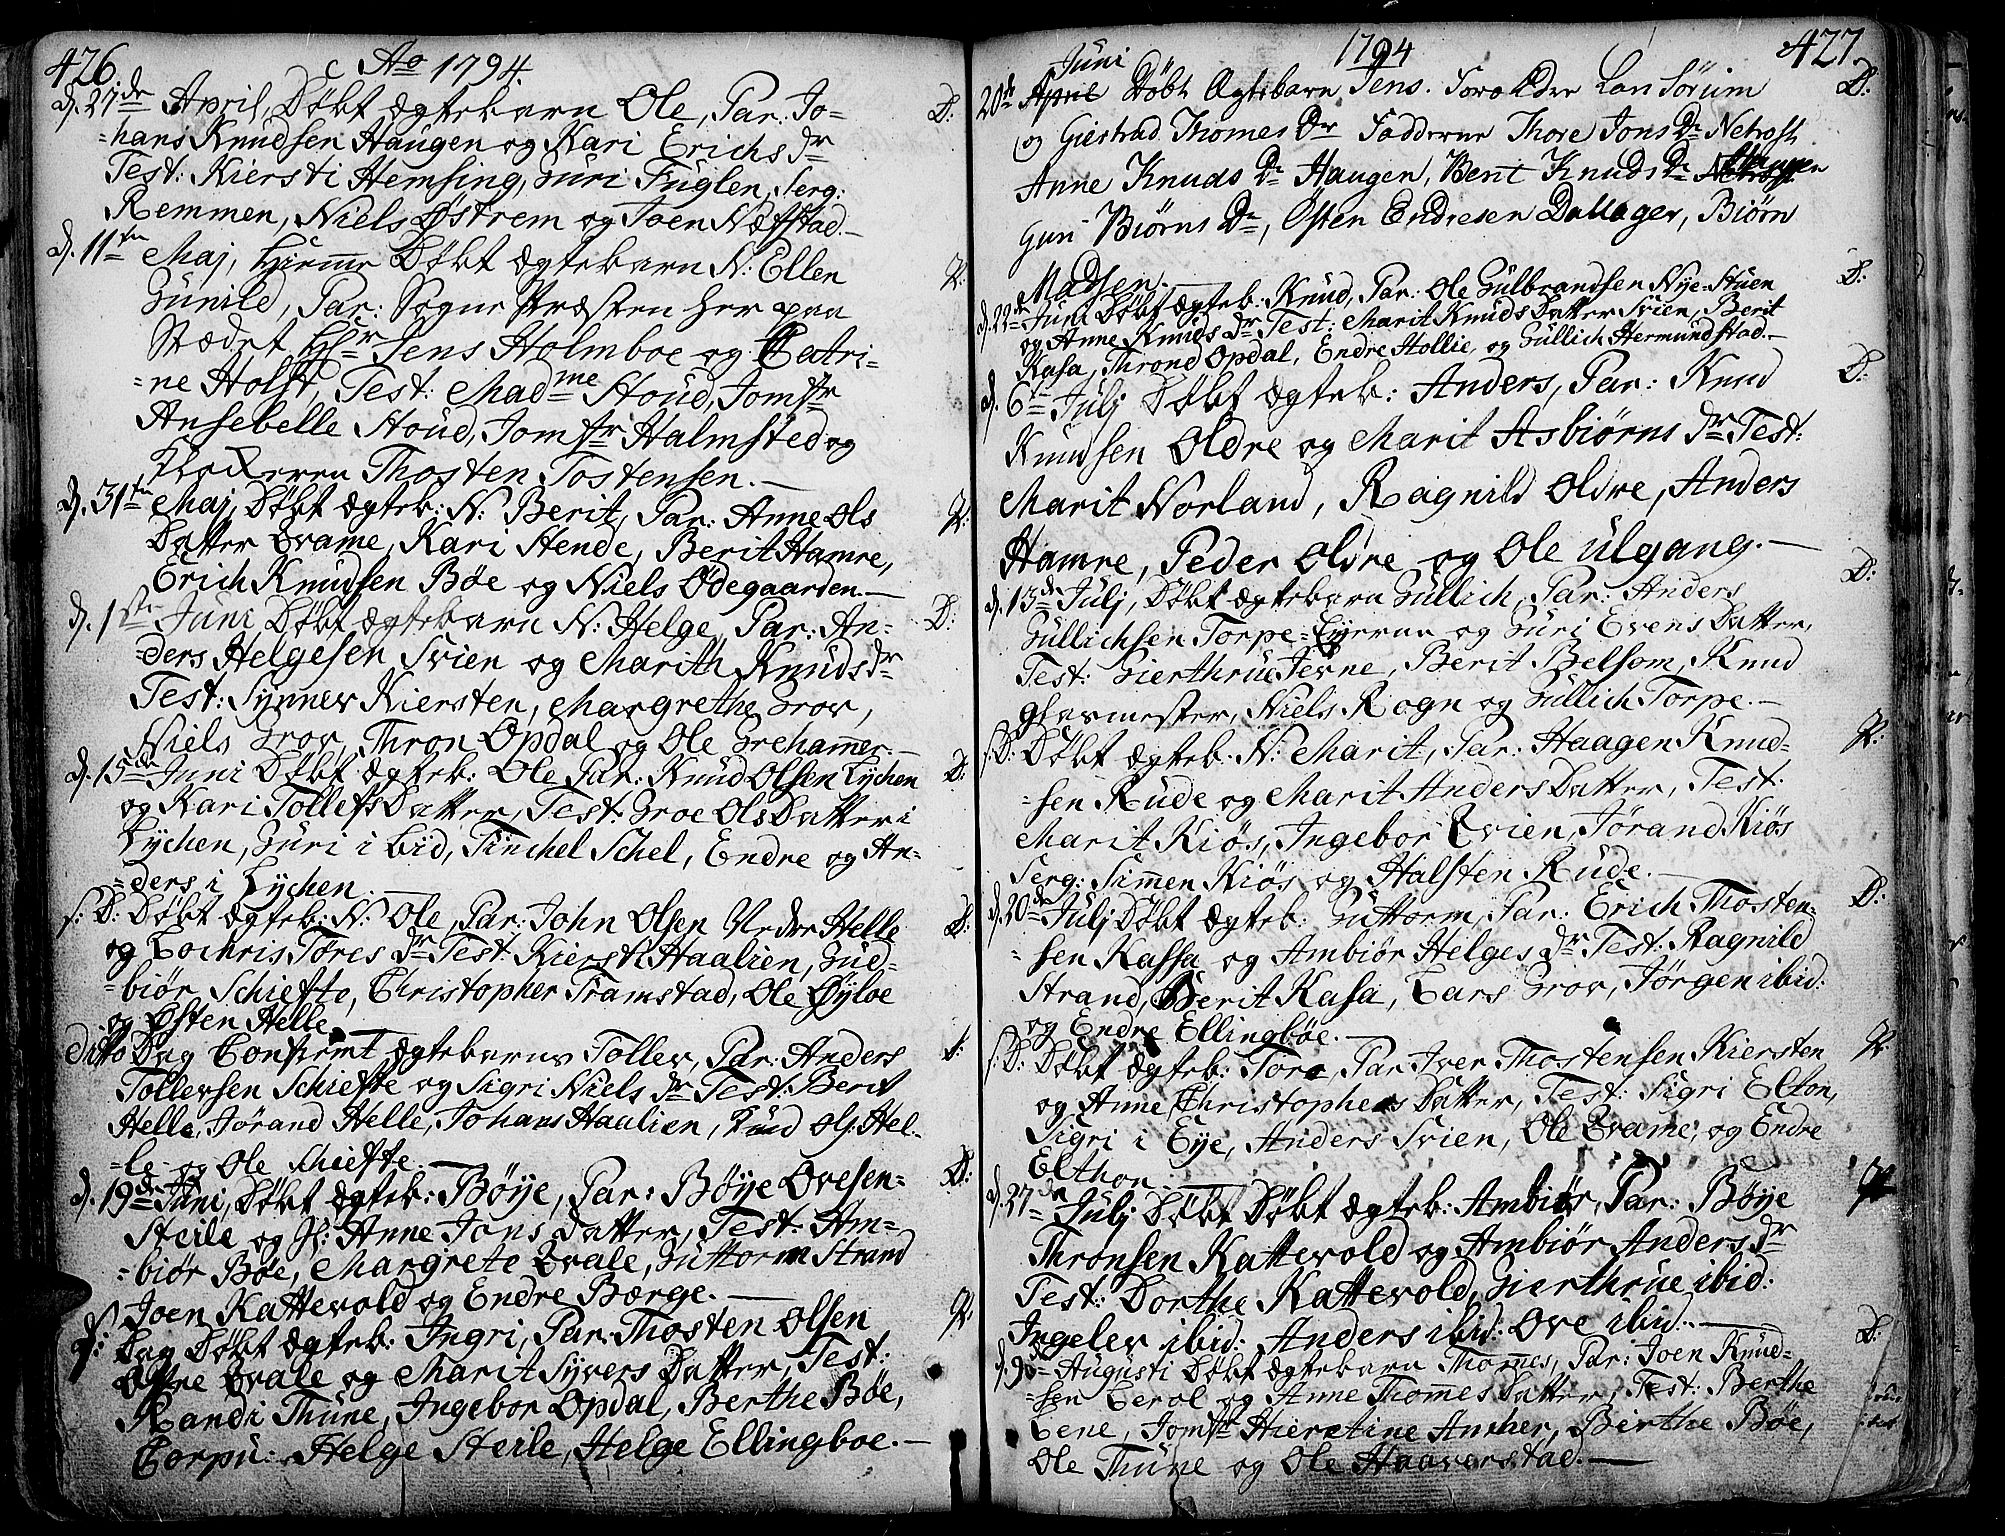 426.
Ao 1794.
d. 27de April, Døbt ægtebarn Ole, Par: Jo- D:
=hans Knudsen Haugen og Kari Erichs dr
Test: Kiersti Hemsing, Guri Fuglen, Serg:
Remmen, Niels Østrem og Joen Næfstad.—
d. 11te Maj, Døbt ægtebarn N: Ellen
Gunild, Par: Sogne Præsten her paa
Stædet Hr Jens Holmboe og Catri-
=ne Holst, Test: Madme Stoud, Jomfr
Ansebelle Stoud, Jomfr Halmsted og
Klockeren Thosten Tostensen.—
d. 31te Maj, Døbt ægteb: N: Berit, Par: Anne Ols
Datter Qvame, Kari Stende, Berit Hamre,
Erich Knudsen Bøe og Niels Ødegaarden.—
d. 1ste Juni Døbt ægtebarn N: Helge, Par: An- D:
=ders Helgesen Svien og Marith Knuds dr
Test: Synnev Kiersten, Margrethe Grov,
Niels Grov, Thron Opdal og Ole Grehamer.—
d. 15de Juni Døbt ægteb: Ole Par: Knud Olsen Lychen D:
og Kari Tollefs Datter, Test: Groe Ols Datter i
Lychen, Guri i bid, Tinchel Schel, Endre og An-
=ders i Lychen.—
s: D: Døbt ægteb: N: Ole, Par: John Olsen Neder Helle D:
og Lochris Tores dr Test: Kiersti Haalien, Gud-
=biør Schiefte, Christopher Tramstad, Ole Øyloe
og Østen Helle.
ditto Dag Confirmt ægtebarns Tollev, Par: Anders
Tollevsen Schiefte og Sigri Niels dr Test: Berit
Helle, Jørand Helle, Johans Haalien, Knud Ols: Hel-
=le og Ole Schiefte.—
d. 19de Juni, Døbt ægteb: Bøye, Par: Bøye Ovesen- D:
Steile og Anne Jons Datter, Test: Am-
=biør Bøe, Margrete Qvale, Guttorm Strand
Joen Kattevold og Endre Børge.—
Dag Døbt ægteb: Ingri, Par: Thosten Olsen
Qvale og Marit Syvers Datter, Test:
Randi Thune, Ingebor Opdal, Berthe Bøe,
Corpu: Helge Steile, Helge Ellingboe.—
1794 427.
Juni
20de April Døbt Ægtebarn Jens. Forældre Lars Sørum D:
og Giertrud Thomes Dr Fadderne Thore Jons Dr Netrost
Anne Knuds Dr Haugen, Berit Knuds Dr Haugen
Gun Biørns Dr, Østen Endresen Dallager, Biørn
Madsen.—
d. 22de Juni Døbt ægteb: Knud, Par: Ole Gulbrandsen Nye=Stuen D:
og Anne Knuds dr Test: Marit Knuds Datter Svien, Berit
Kasa, Thrond Opdal, Endre Hollie, og Gullich Hermundstad.—
d. 6te Julj Døbt ægteb: Anders, Par: Knud D:
Knudsen Oldre og Marit Asbiørns dr Test:
Marit Norland, Ragnild Oldre, Anders
Hamre, Peder Oldre og Ole Ulgang.—
d. 13de Julj, Døbt ægtebarn Gullich, Par: Anders D:
Gullichsen Torpe=Eyerne og Guri Evens Datter,
Test: Gierthrue Jevne, Berit Belsom, Knud
glasmester, Niels Rogn og Gullich Torpe.—
s: D: Døbt ægteb: N: Marit, Par: Haagen Knud-
=sen Rude og Marit Anders Datter, Test:
Marit Kiøs, Ingebor Qvien, Jørand Kiøs
Serg: Simen Kiøs og Halsten Rude.—
d. 20de Julj Døbt ægteb: Guttorm, Par: Erich Thosten- D:
=sen Kassa og Ambiør Helges dr Test: Ragnild
Strand, Berit Kasa, Lars Grov, Jørgen ibid:
og Endre Ellingbøe.—
s: D: Døbt ægteb: Tore, Par Iver Thostensen Kiersten
og Anne Christophers Datter, Test: Sigri Elton,
Sigri i Eye, Anders Svien, Ole Qvame, og Endre
Elthon.—
d. 27de Julj Døbt Døbt ægteb: Ambiør, Par: Bøye
Thronsen Kattevold og Ambiør Anders dr
Test: Dorthe Kattevold, Gierthrue ibid:
Ingelev ibid: Anders ibid: Ove ibid:—
d. 9de Augusti Døbt ægtebarn Thomes, Par: Joen Knud- D:
=sen Qerol og Anne Thomes Datter, Test: Berthe
Lene, Jomfr Hieretine Ancher, Birthe Bøe,
Ole Thune og Ole Haaverstad.—